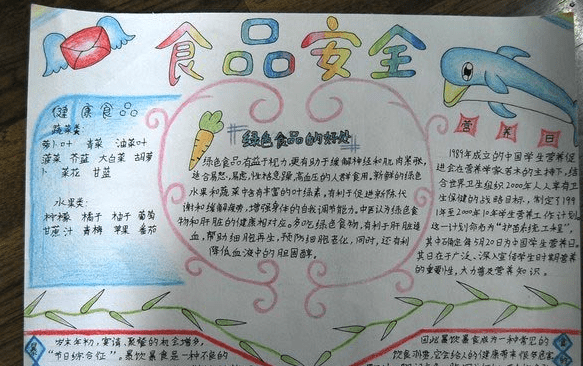 食品安全
健康食品
蔬菜类:
萝卜叶 青菜 油菜叶
菠菜 芥蓝 大白菜 胡萝
卜 菜花 甘蓝
水果类:
柠檬 橘子 柚子 葡萄
甘蔗汁 青梅 苹果 番茄
#绿色食品的好处#
绿色食品有益于视力,更有助于缓解神经和肌肉紧张,
适合易怒,易虑,性格急躁,高血压的人群食用,新鲜的绿色
水果和蔬菜中含有丰富的叶绿素,有利于促进新陈代
谢和缓解疲劳,增强身体的自我调节能力,中医认为绿色食
物和肝脏的健康相对应。多吃绿色食物,有利于肝脏造
血,帮助细胞再生,预防细胞老化,同时,还有利
降低血液中的胆固醇。
营养日
1989年成立的中国学生营养促
进会在营养学家若木的主持下,结
合世界卫生组织2000年人人享有卫
生保健的战略目标,制定了199
1年至2000年10年学生营养工作计划
这一计划命名为“护苗系统工程”,
其中确定每5月20日为中国学生营养日。
其目在于广泛、深入宣传学生时期营养
的重要性,大力普及营养知识。
岁末年初,宴请、聚餐的机会增多,
“节日综合征”。暴饮暴食是一种不良的
因此暴饮暴食成为一种常见的
饮食习惯,它会给人的健康带来很多危害